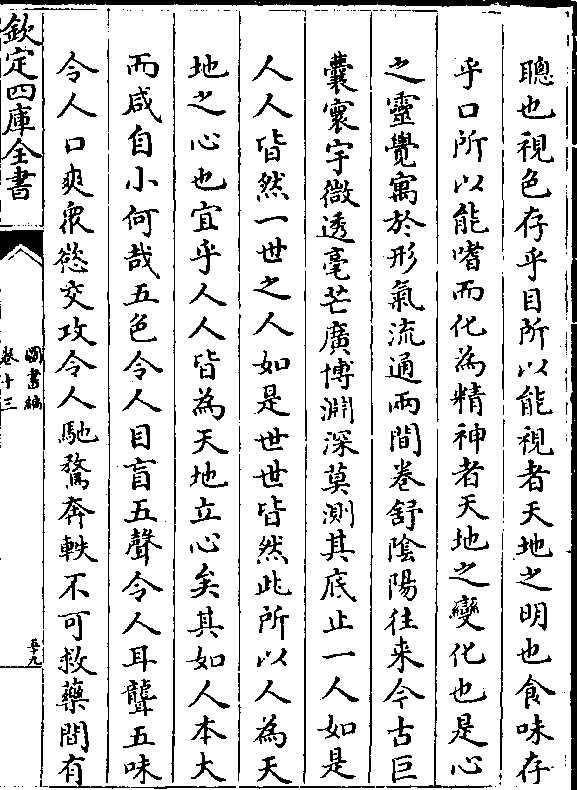 聰也視色存乎目所以能視者天地之明也食味存
乎口所以能嗜而化為精神者天地之變化也是心
之靈覺寓於形氣流通兩間卷舒陰陽往来今古巨
囊寰宇微透毫芒廣博淵深莫測其底止一人如是
人人皆然一世之人如是世世皆然此所以人為天
地之心也宜乎人人皆為天地立心矣其如人本大
而咸自小何哉五色令人目盲五聲令人耳聾五味
令人口爽衆慾交攻令人馳騖奔軼不可救藥間有
欽定四庫全書
圖書編
卷十三
五九